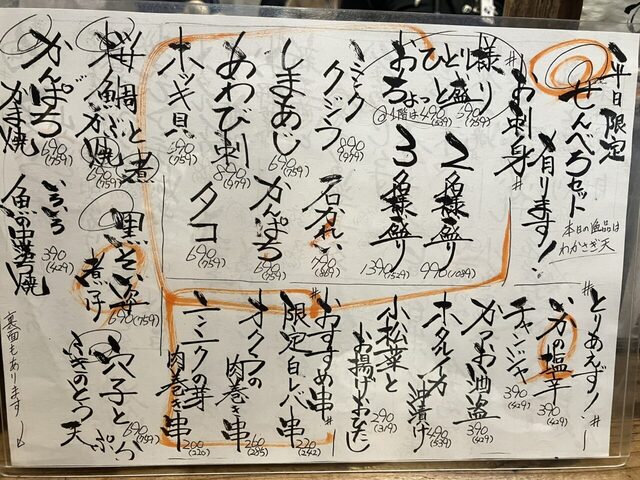 平日限定
せんべろセット
有ります!
本日の逸品は
わかさぎ天
#お刺身#
おひとり様
ちょっと盛り
490(539)
690(759)
2名様盛り
990(1089)
3名様盛り
1390(1529)
ミンククジラ
890(979)
石がれい
790(869)
しまあじ
690(759)
かんぱち
690(759)
あわび刺
890(979)
タコ
690(759)
ホッキ貝
690(759)
桜鯛かぶと煮
690(759)
黒そい姿煮付
690(759)
穴子と
ふきのとう天ぷら
690(759)
かんぱちかま焼
690(759)
いろいろ
魚の串焼
390(429)
裏面もあります!
#とりあえず!#
いかの塩辛
390(429)
チャンジャ
390(429)
かつお酒盗
390(429)
ホタルイカ沖漬け
490(539)
小松菜と
お揚げおひたし
290(319)
#おすすめ串#
限定白レバ串
220(242)
オクラの肉巻き串
260(285)
ニンニクの芽肉巻き串
200(220)